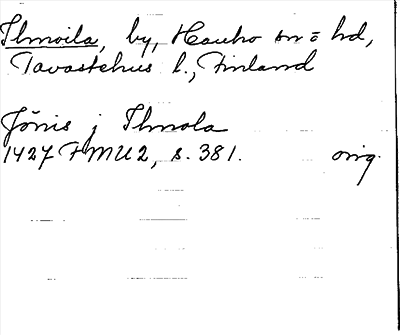 Ilmoila, by, Hauho sn = hd,
Tavastehus l., Finland
Jönis j Ilmola
1427 FMU 2, s. 381. orig.